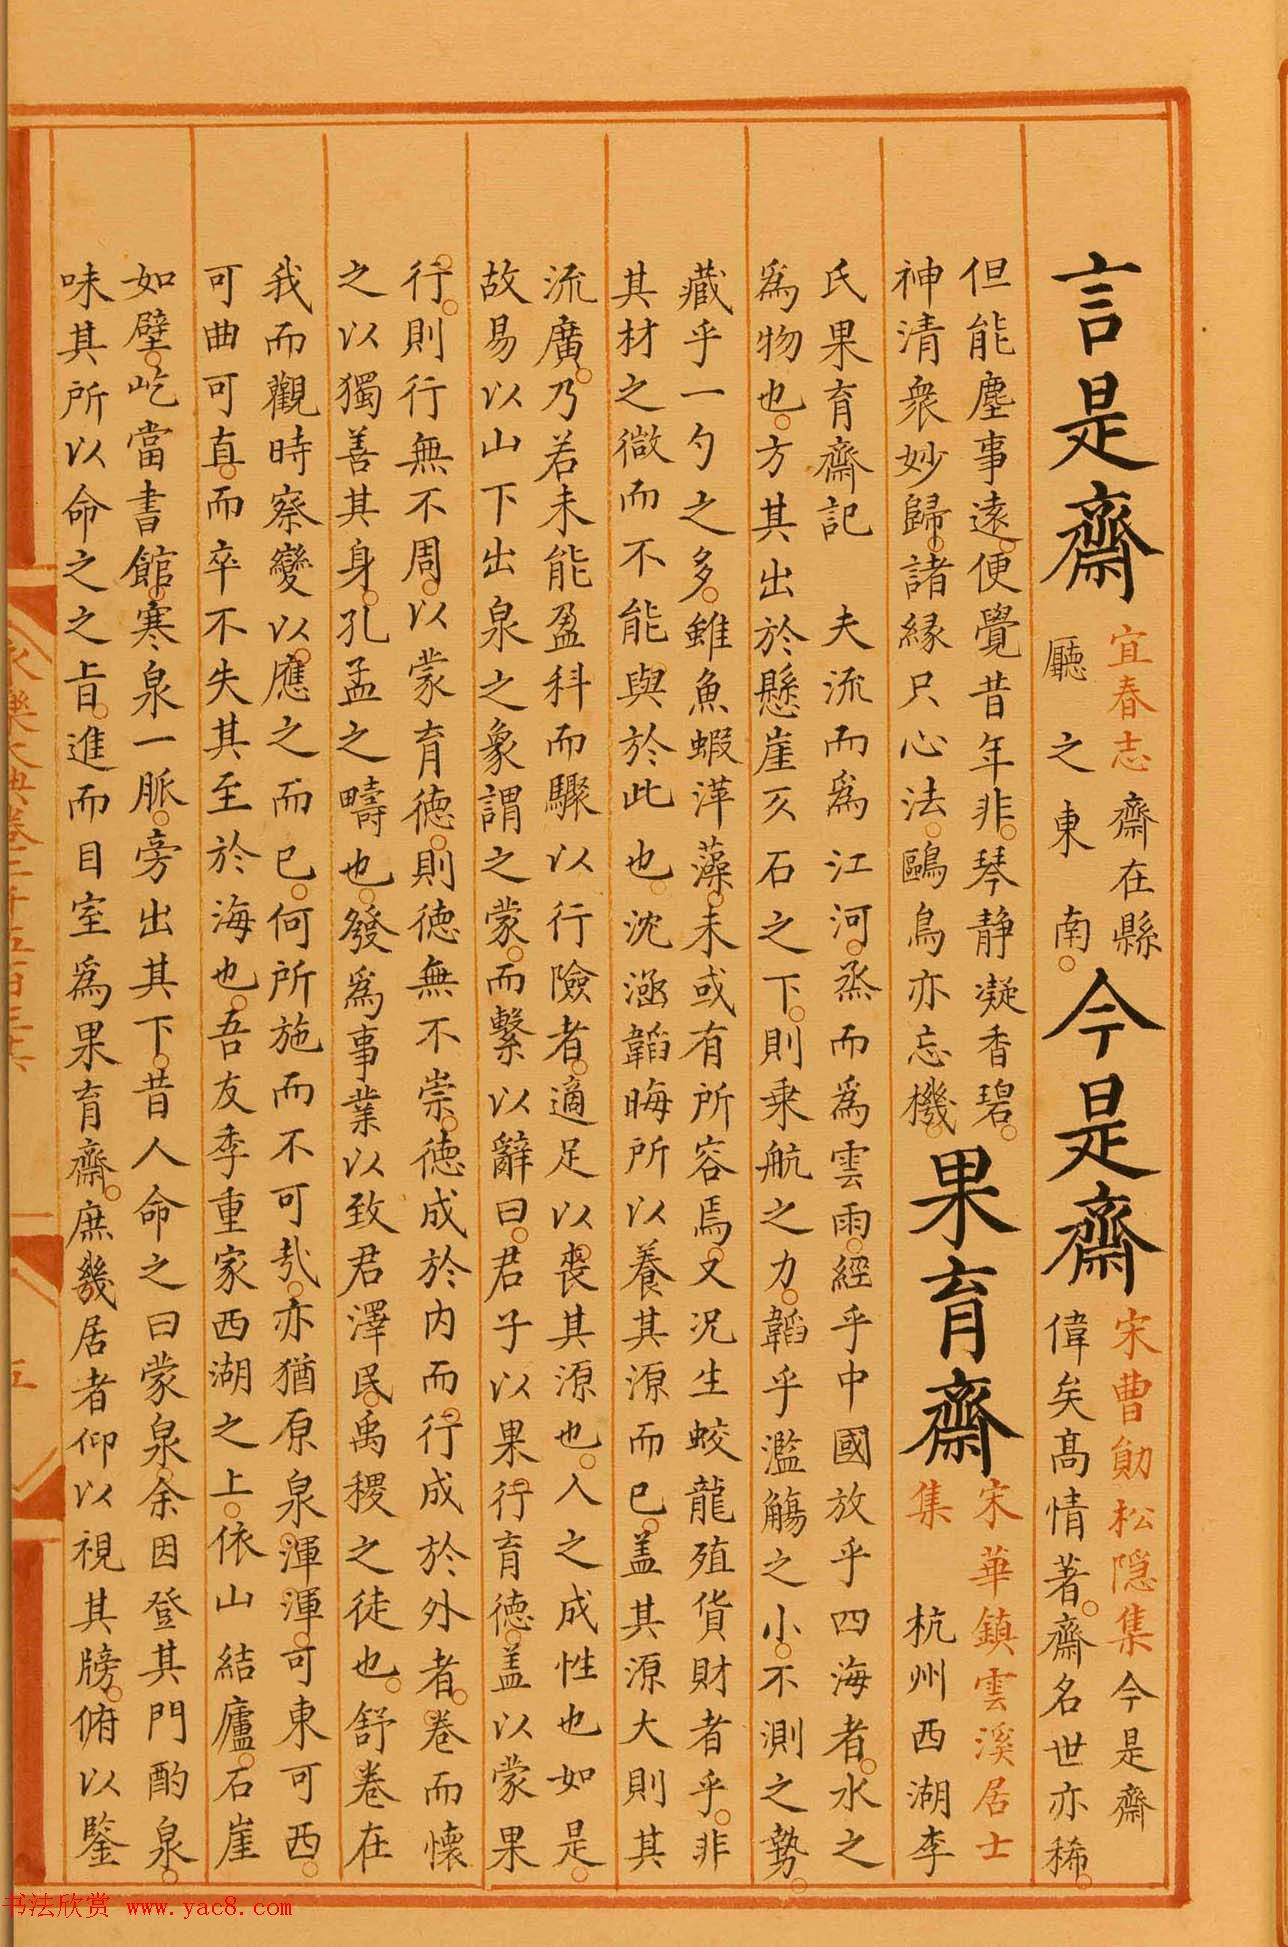 言是齋
宜春志齋在縣
廳之東南。
今是齋
宋曹勛松隱集今是齋
偉矣髙情著。齋名世亦稀。
但能塵事遠。便覺昔年非。琴静凝香碧。
神清衆妙歸。諸緣只心法。鷗鳥亦忘機。
果育齋
宋華鎮雲溪居士
集 杭州西湖李
氏果育齋記 夫流而爲江河。烝而爲雲雨。經乎中國放乎四海者。水之
爲物也。方其出於懸崖仄石之下。則乗航之力。韜乎濫觴之小。不測之勢。
藏乎一勺之多。雖魚蝦萍藻。未或有所容焉。又况生蛟龍殖貨財者乎。非
其材之微而不能與於此也。沈涵韜晦所以養其源而已。盖其源大則其
流廣。乃若未能盈科而驟以行險者。適足以喪其源也。人之成性也如是。
故易以山下出泉之象謂之蒙。而繫以辭曰。君子以果行育德。盖以蒙果
行。則行無不周。以蒙育德。則德無不崇。德成於内而。行成於外者。卷而懷
之以獨善其身。孔孟之疇也。發爲事業以致君澤民。禹稷之徒也。舒卷在
我而觀時察變以應之而已。何所施而不可哉。亦猶原泉。渾渾。可東可西。
可曲可直。而卒不失其至於海也。吾友季重家西湖之上。依山結廬。石崖
如壁。屹當書館。寒泉一脈。旁出其下。昔人命之曰蒙泉。余因登其門酌泉。
味其所以命之之旨。進而目室爲果育齋。庶幾居者仰以視其牓。俯以鑒
永樂大典卷二千五百三十六
五
书法欣赏 www.yac8.com